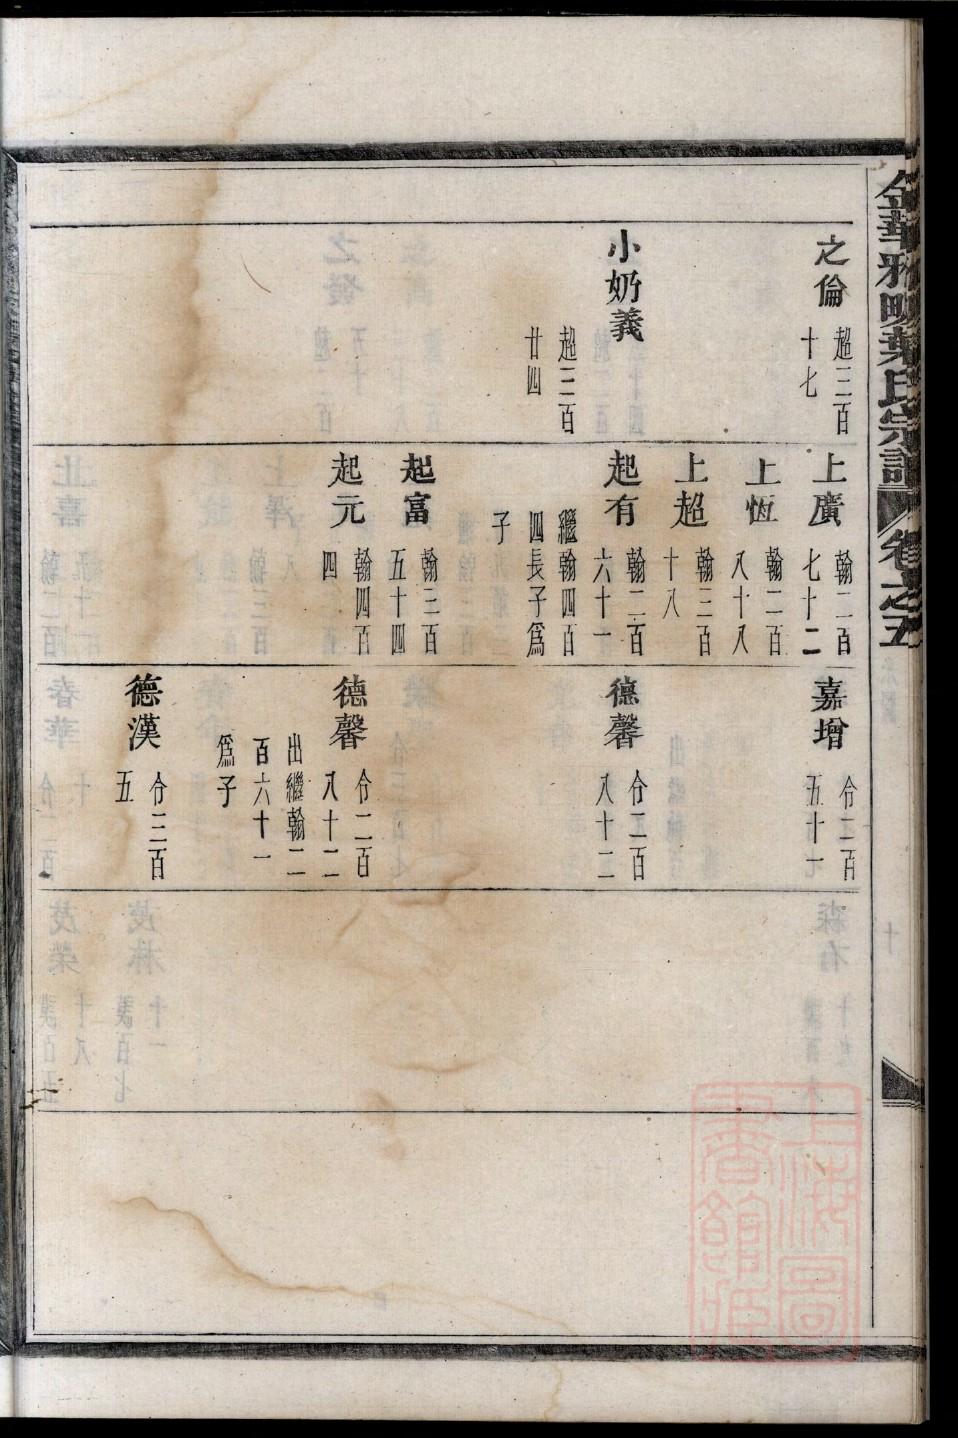 金華雅畈葉氏宗譜 卷之五
之倫 超三百十七
小奶義 超三百廿四
上廣 翰二百七十二
上恆 翰二百八十八
上超 翰三百十八
起有 翰二百六十一 繼翰四百四長子爲子
起富 翰三百五十四
起元 翰四百四
嘉增 令二百五十一
德馨 令二百八十二
德馨 令二百八十二 出繼翰二百六十一爲子
德漢 令三百五
上海圖書館藏